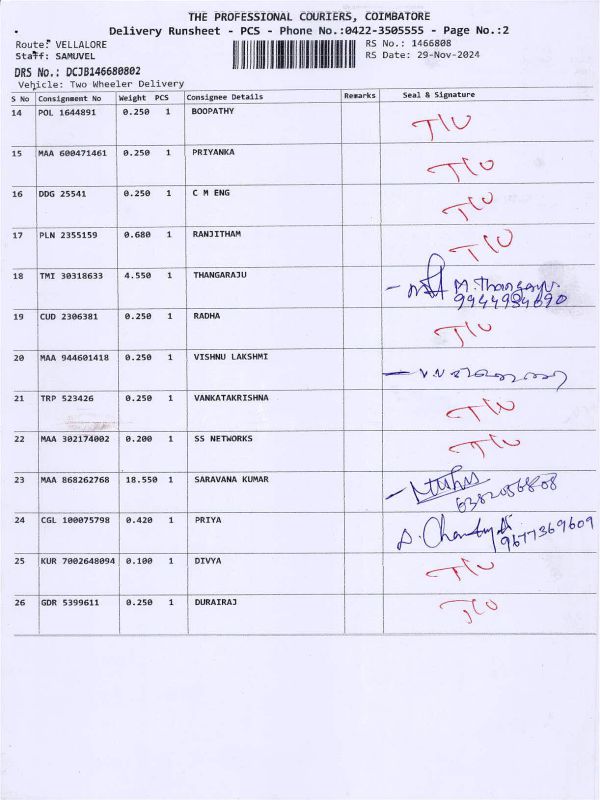 THE PROFESSIONAL COURIERS, COIMBATORE
Delivery Runsheet - PCS - Phone No.:0422-3505555 - Page No.:2
Route: VELLALORE RS No.: 1466808
Staff: SAMUVEL RS Date: 29-Nov-2024
DRS No.: DCJB146680802
Vehicle: Two Wheeler Delivery
S No Consignment No Weight PCS Consignee Details Remarks Seal & Signature
14 POL 1644891 0.250 1 BOOPATHY T/U
15 MAA 600471461 0.250 1 PRIYANKA T/U
16 DDG 25541 0.250 1 C M ENG T/U
17 PLN 2355159 0.680 1 RANJITHAM T/U
18 TMI 30318633 4.550 1 THANGARAJU M.Thangaraju
9944984690
19 CUD 2306381 0.250 1 RADHA T/U
20 MAA 944601418 0.250 1 VISHNU LAKSHMI
21 TRP 523426 0.250 1 VANKATAKRISHNA T/U
22 MAA 302174002 0.200 1 SS NETWORKS T/U
23 MAA 868262768 18.550 1 SARAVANA KUMAR
6382056808
24 CGL 100075798 0.420 1 PRIYA
9677369609
25 KUR 7002648094 0.100 1 DIVYA T/U
26 GDR 5399611 0.250 1 DURAIRAJ T/U